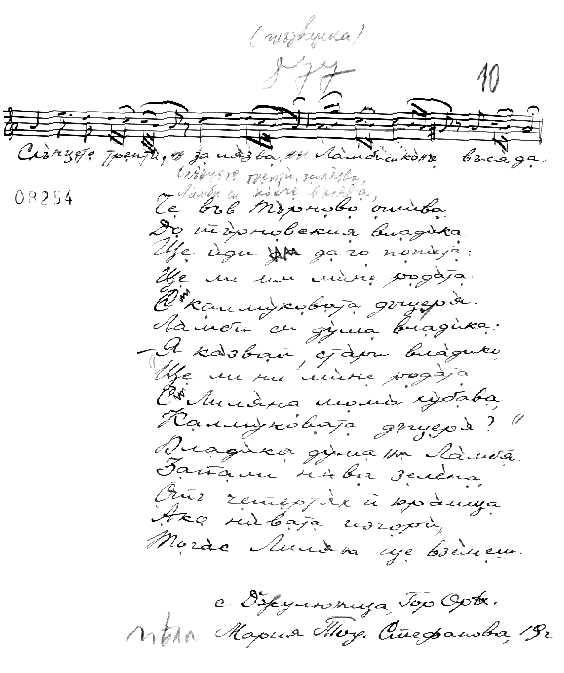 (търкулка)
877
10
Слънцето трепти, заляза, Ламби си коне възсяда.
Слънцето трепти, заляза,
Ламби си коне възсяда,
08254
Че във Търново отива
До търновския владика
Ще иди да го попита:
Ще ли им мине родата
С калмуковата дъщеря.
Ламби си дума владика:
– Я казвай, стари владико
Ще ли ни мине родата
С Лиляна мома хубава,
Калмуковата дъщеря?"
Владика дума на Ламбя.
Запали ниви зелена,
Отъ четертях и краища
Ако нивата изгори,
Тогас Лиляна ще вземеш.
с. Джулюница, Гор Орѣх.
пѣла Мария Тод. Стефанова, 19 г.